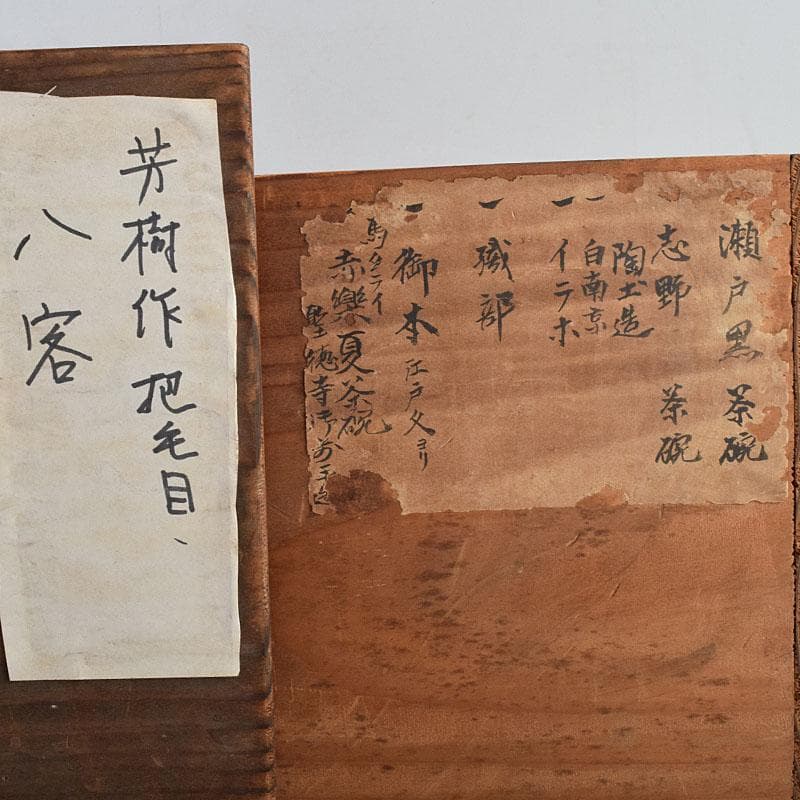 瀬戸黒 茶碗
志野 茶碗
一 陶土造
白南京
一 イラホ
一 織部
一 御本 江戸久ヨリ
馬タライ
赤樂夏茶碗
聖徳寺
芳樹作 把毛目、
八客